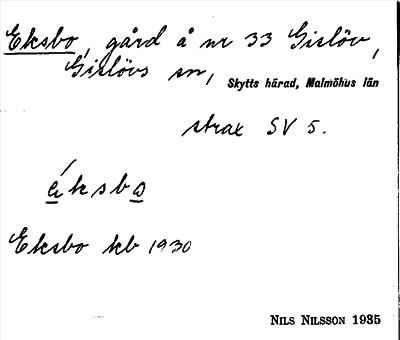 Eksbo, gård å nr 33 Gislöv,
Gislövs sn, Skytts härad, Malmöhus län
strax SV 5.
éksbo
Eksbo kb 1930
NILS NILSSON 1935